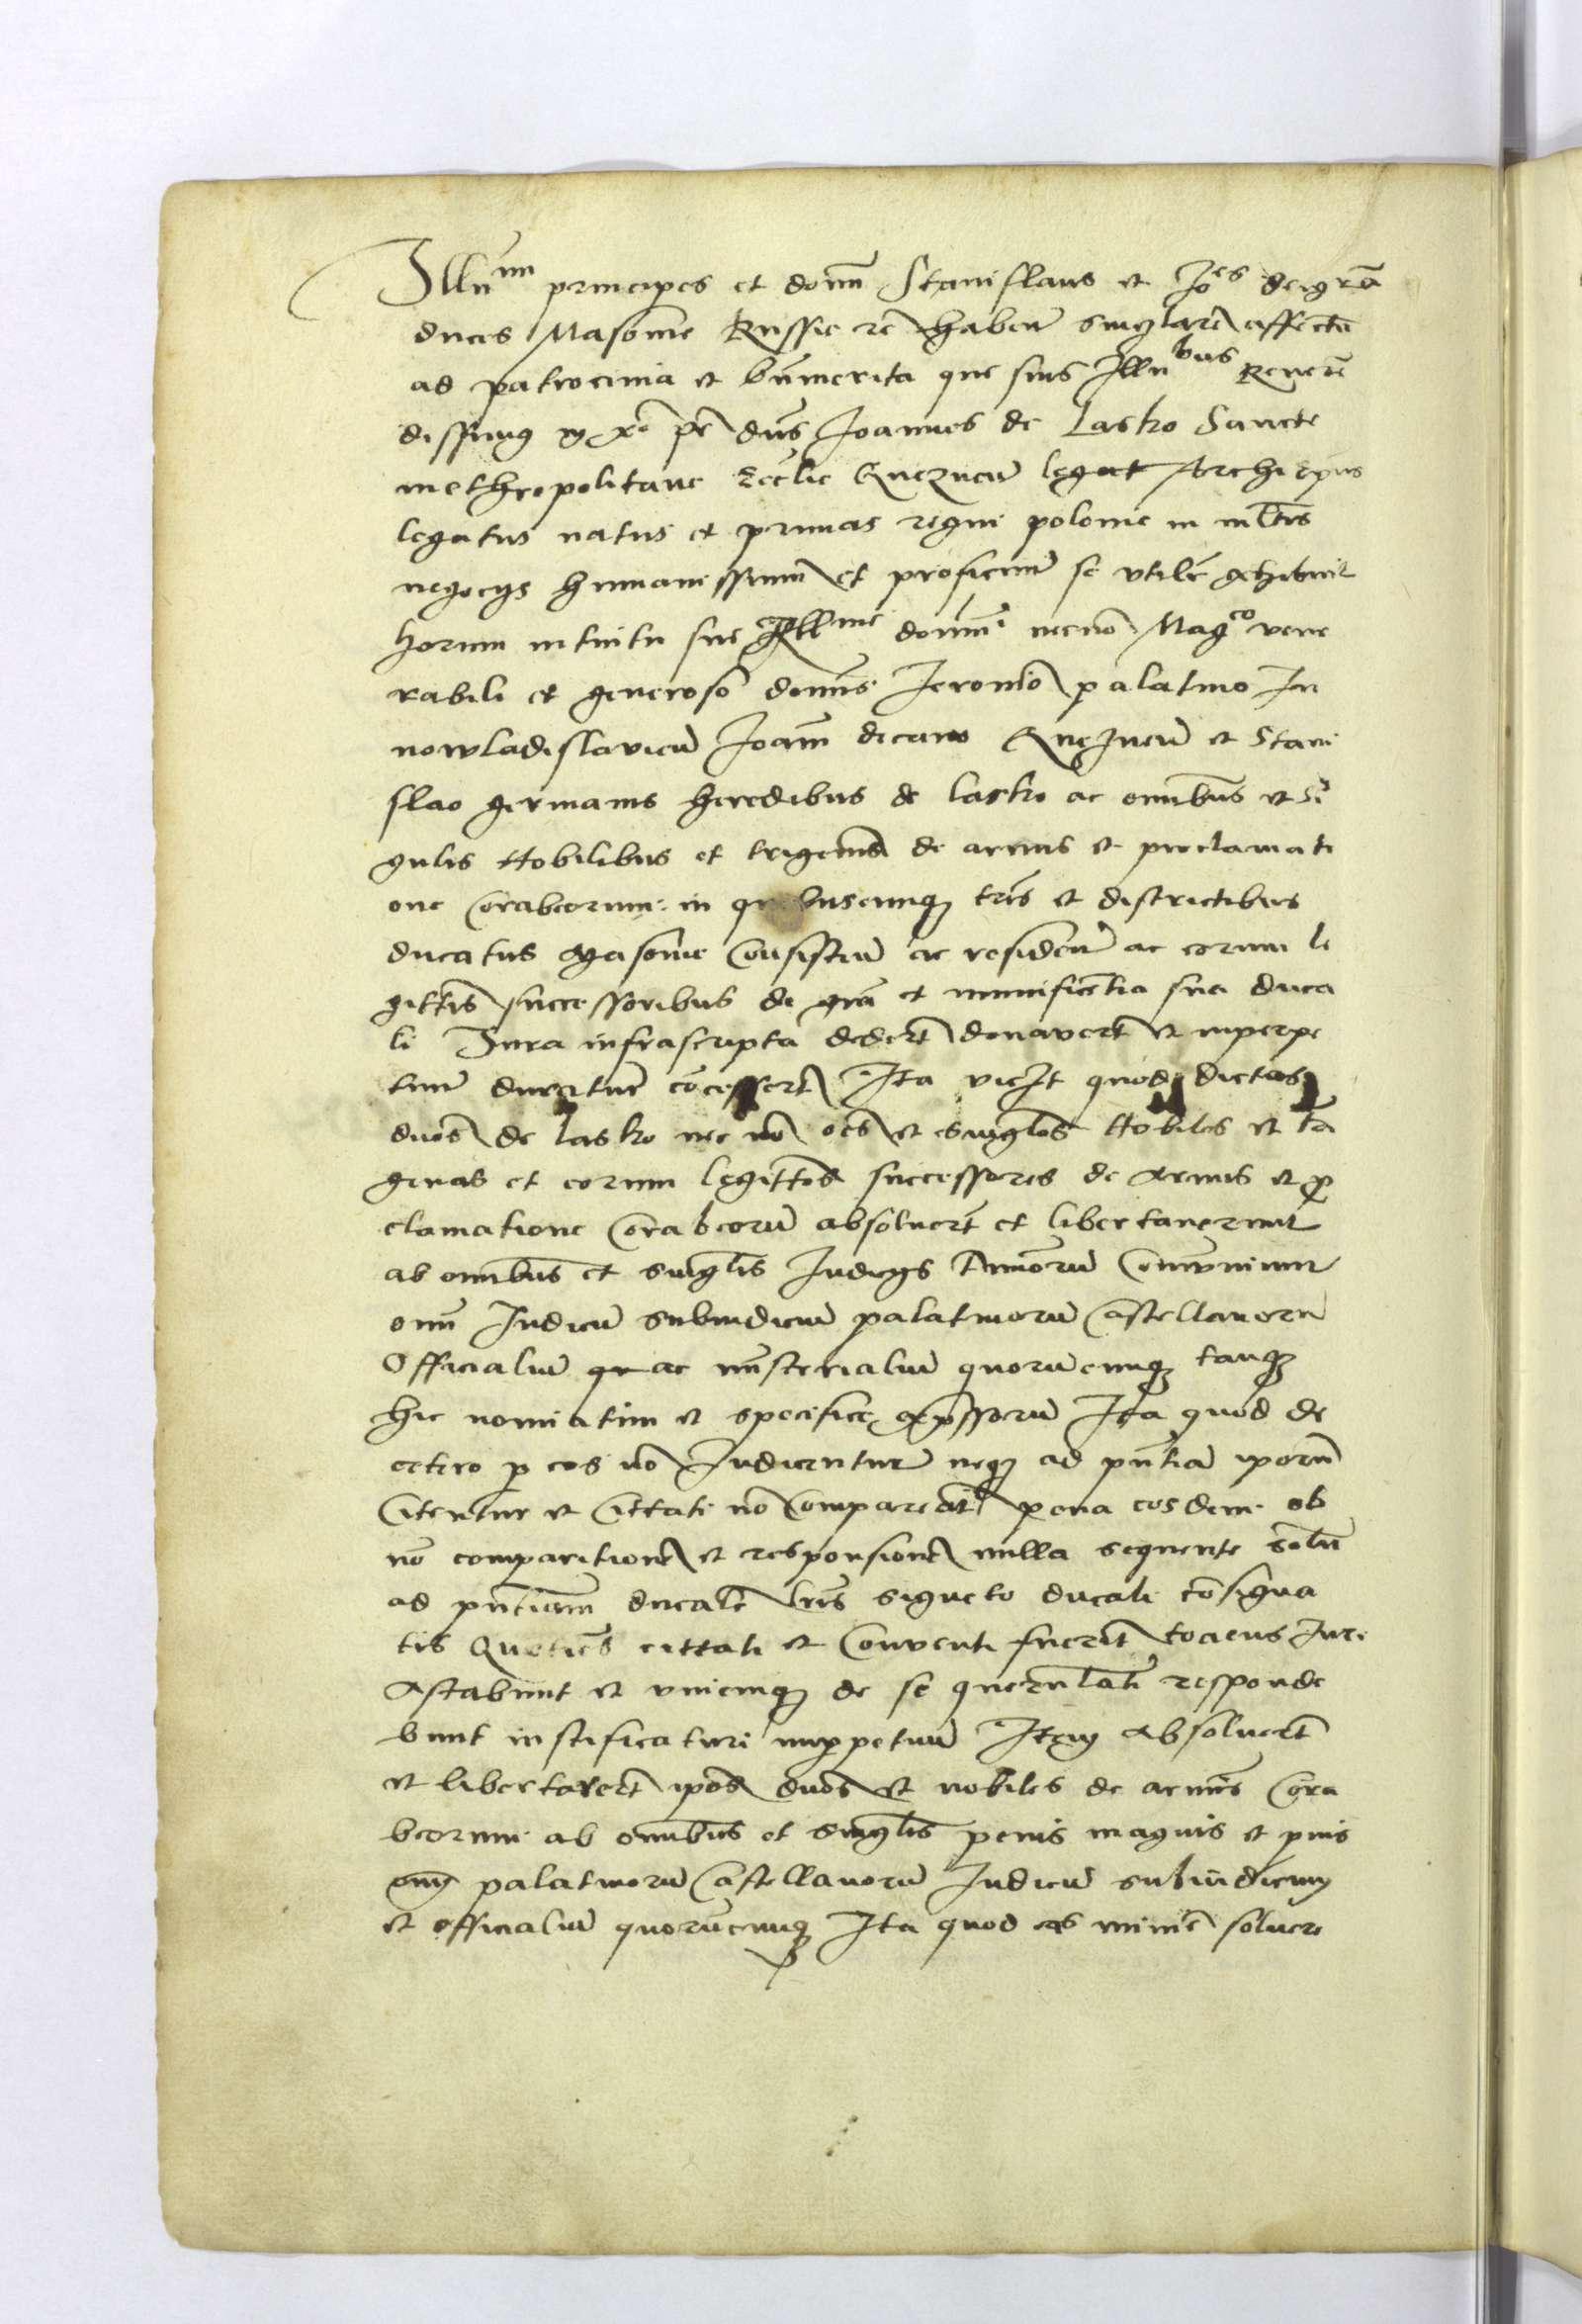 Illu^mi principes et domi Stanislaus et Jo^es dei gra
duces Masovie Russie rc habem singlare affectu
ad patrocinia et bnmerita que suis Illu^bus Reveren
dissimus in xo pr dns Joannes de Lasko Sancte
methropolitane Ecclie Gneznen legat Archiepus
legatus natus et primas regni polonie in mltis
negocys humanissimum et proficuum se utilem exhibuit
horum intuitu sue Ill^me domni necno Mag^co vene
rabili et generoso domis Jeronimo palatino In
nowladislavien Joam decano Gneznen et Stani
slao germanis heredibus de Lasko ac omnibus et si
gulis Nobilibus et trigenis de armis et proclamati
one Corabeorum in quibuscunq tris et districtibus
ducatus Masovie Consisten ac residen ac eorum le
gittis successoribus de gra et munificentia sua duca
li Jura infrascripta dedert donavert et inperpe
tuum duratur concessert Ita viclt quod dictos
dnos de Lasko nec no oes et singlos Nobiles et ta
genas et eorum legittos successores de armis et p
clamatione Corabeoru absoluert et libertaverunt
ab omnibus et singlis Judicys Terrioru Comuniumr
omi Judicu subiudicu palatinoru Castellanoru
Officialiu qr ac misterialiu quorucunq tanq
hic nomiatim et specifice expssoru Ita quod de
cetero p eos no Judicentur neq ad pntia iporu
Citentur et Cittati no Compareant pena eosdem ob
no comparitione et responsione nulla sequente solu
ad pntiam ducale lris signeto ducali consigna
tis Quoties cittati et Conventi fuerint tociens Juri
Astabunt et unicuiq de se querulati responde
bunt iustificaturi inppetuu Item absoluert
et libertavert ipos dnos et nobiles de armis Cora
beorum ab omnibus et singlis penis magnis et pvis
omi palatinoru Castellanoru Judicu subiudicum
et officialiu quorucunq Ita quod eas minime solvere